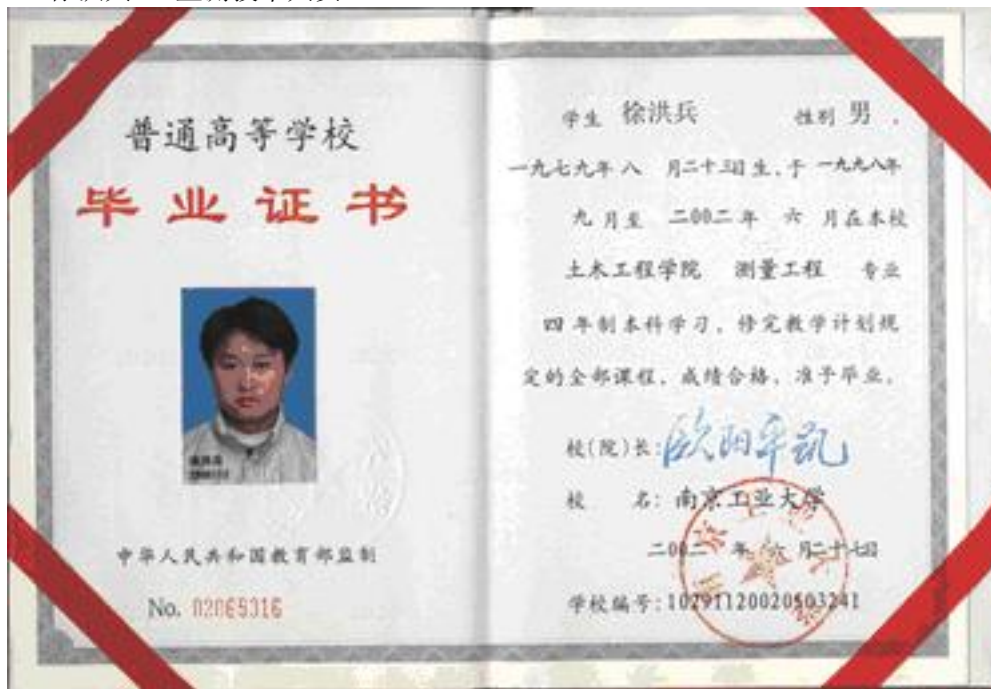 普通高等学校
毕业证书
中华人民共和国教育部监制
No. 02065316
学生 徐洪兵 性别 男 ,
一九七九年八 月二十三日生,于 一九九八年
九 月至 二00二年 六 月在本校
土木工程学院 测量工程 专业
四 年制本科学习,修完教学计划规
定的全部课程,成绩合格,准予毕业。
校(院)长: 欧阳平凯
校 名: 南京工业大学
二00二 年 六 月二十七日
学校编号:10291120020503241